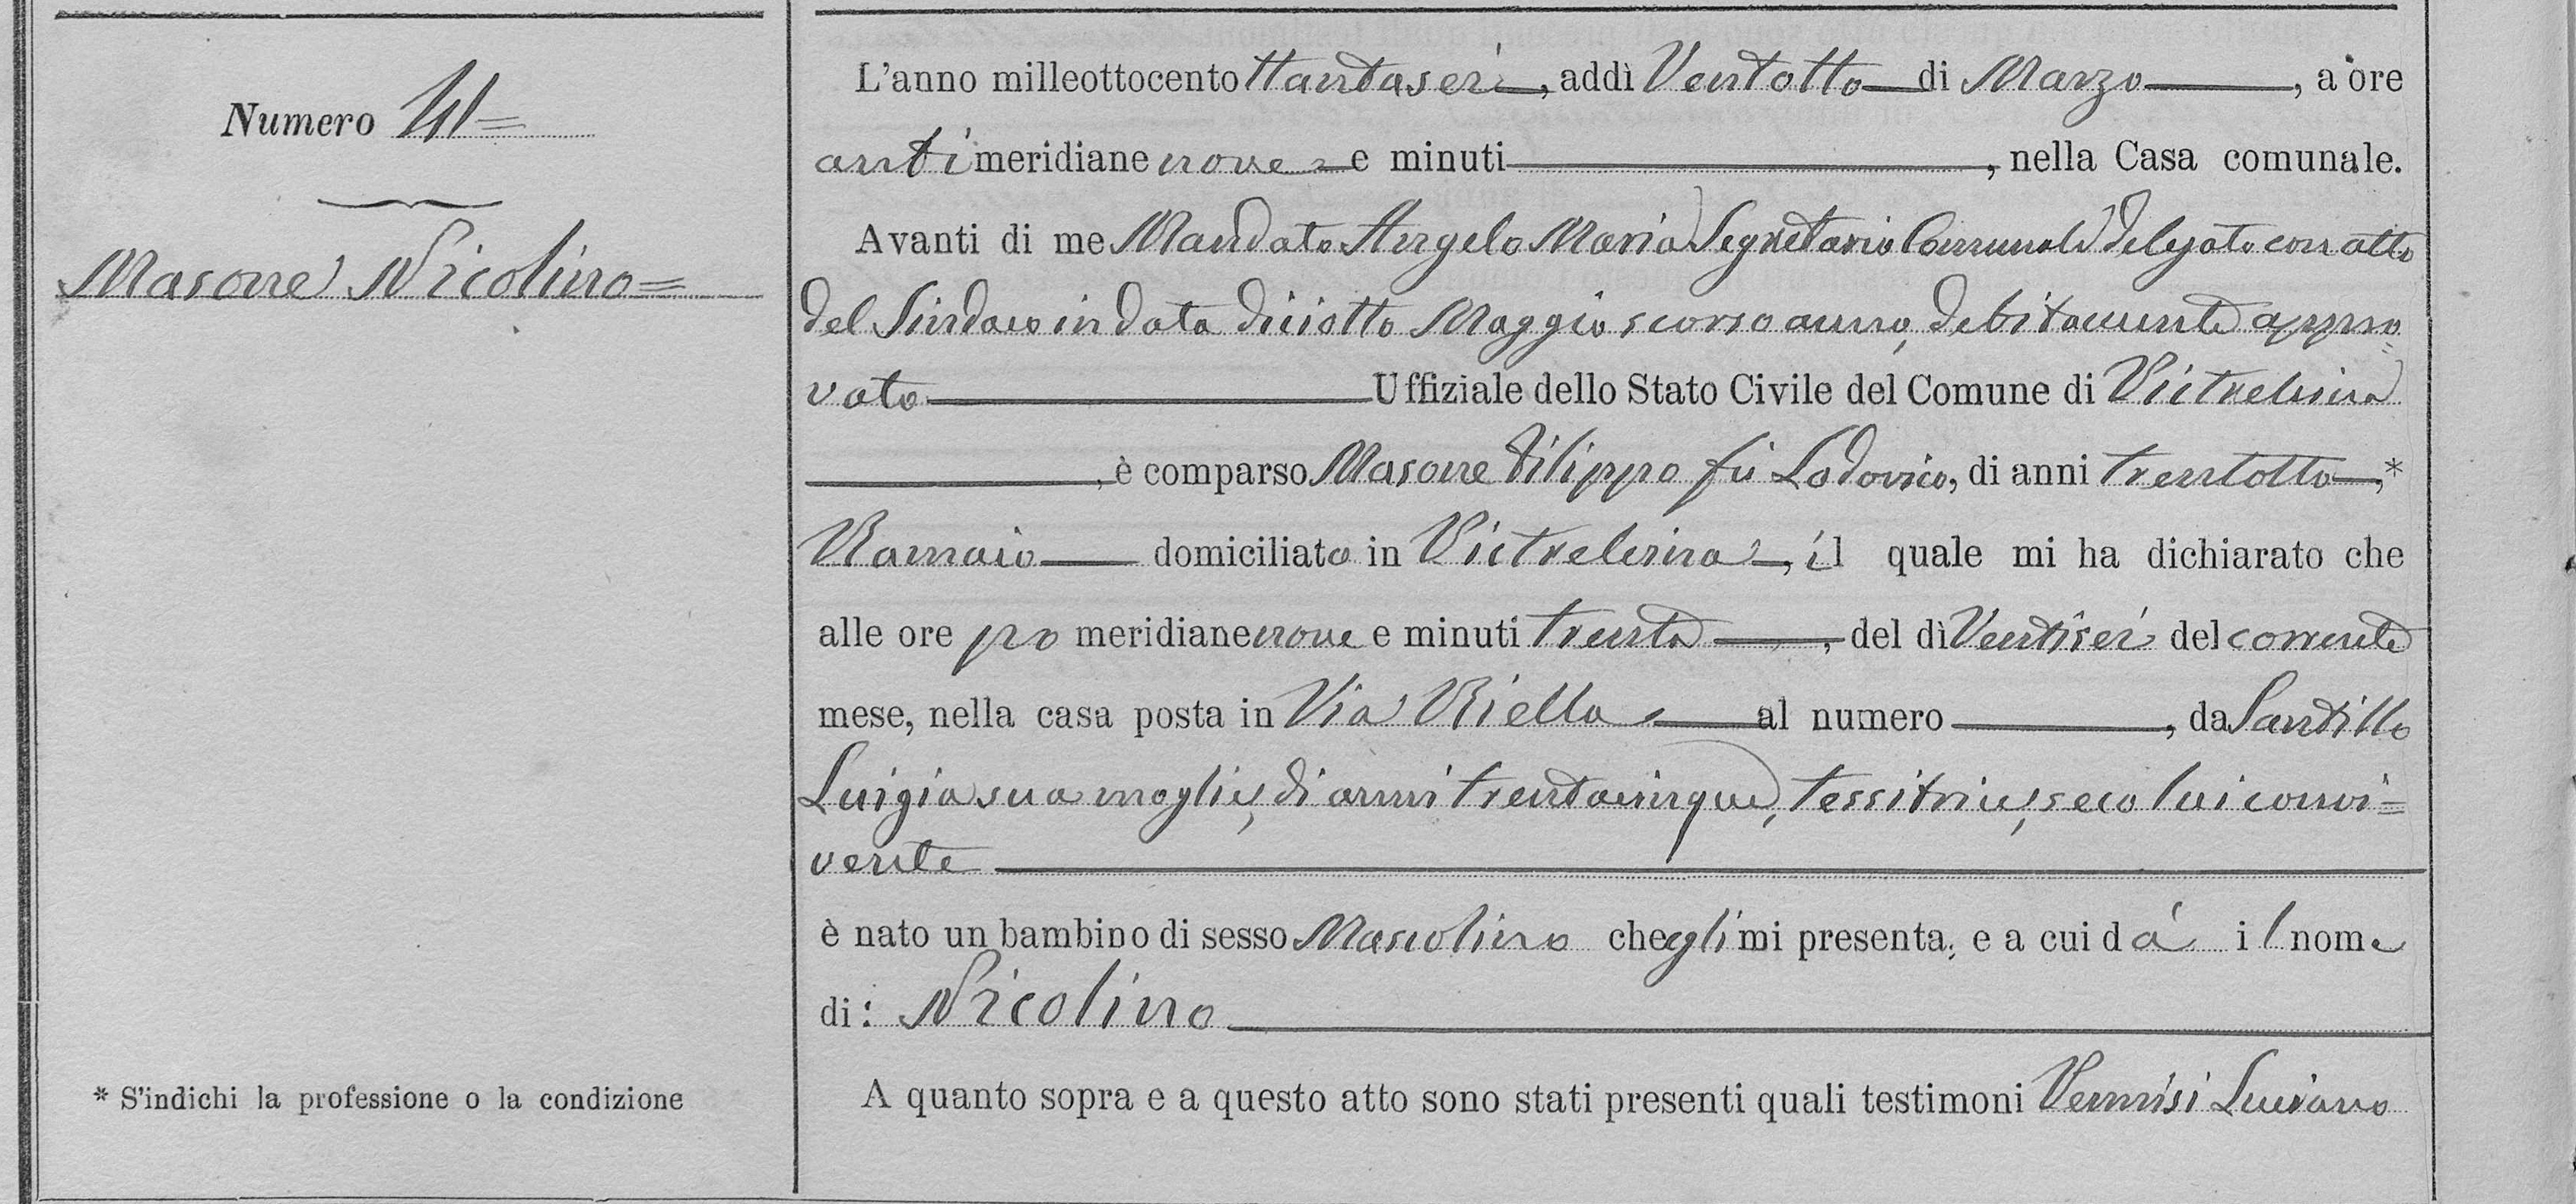 Numero 41=
Masone Nicolino=
* S'indichi la professione o la condizione
L'anno milleottocentottantasei, addì Ventotto di Marzo, a ore
antimeridiane nove e minuti, nella Casa comunale.
Avanti di me Mandato Angelo Maria Segretario Comunale delegato con atto
del Sindaco in data diciotto Maggio scorso anno, debitamente appro=
vato Uffiziale dello Stato Civile del Comune di Vietrelcina
, è comparso Masone Filippo fù Lodovico, di anni trentotto,*
Ramaio domiciliato in Vietrelcina, il quale mi ha dichiarato che
alle ore po meridiane nove e minuti trenta, del dì Ventisei del corrente
mese, nella casa posta in Via Riella al numero, da Santillo
Luigia sua moglie, di anni trentacinque, tessitrice, seco lui convi=
vente
è nato un bambino di sesso Mascolino che egli mi presenta, e a cui dà il nome
di: Nicolino
A quanto sopra e a questo atto sono stati presenti quali testimoni Luciano